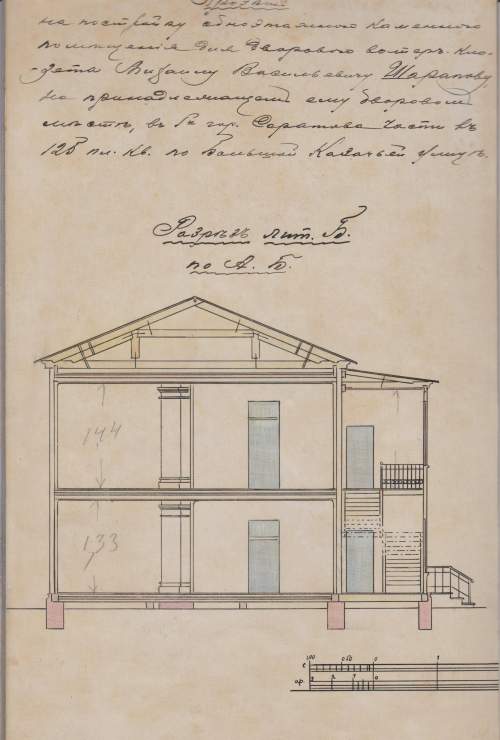 Проэктъ
на постройку одноэтажнаго каменнаго
помещенія для дворового ватеръ-кло-
-зета Михаилу Васильевичу Шарапову,
на принадлежащемъ ему дворовомъ
мѣстѣ, въ гор. Саратова части въ
128 пл. кв. по Большой Казачьей улицѣ.
Разрѣзъ лит. Б.
по А. Б.
144
1,33
100 050 0 1
с
3 2 1 0
ар.